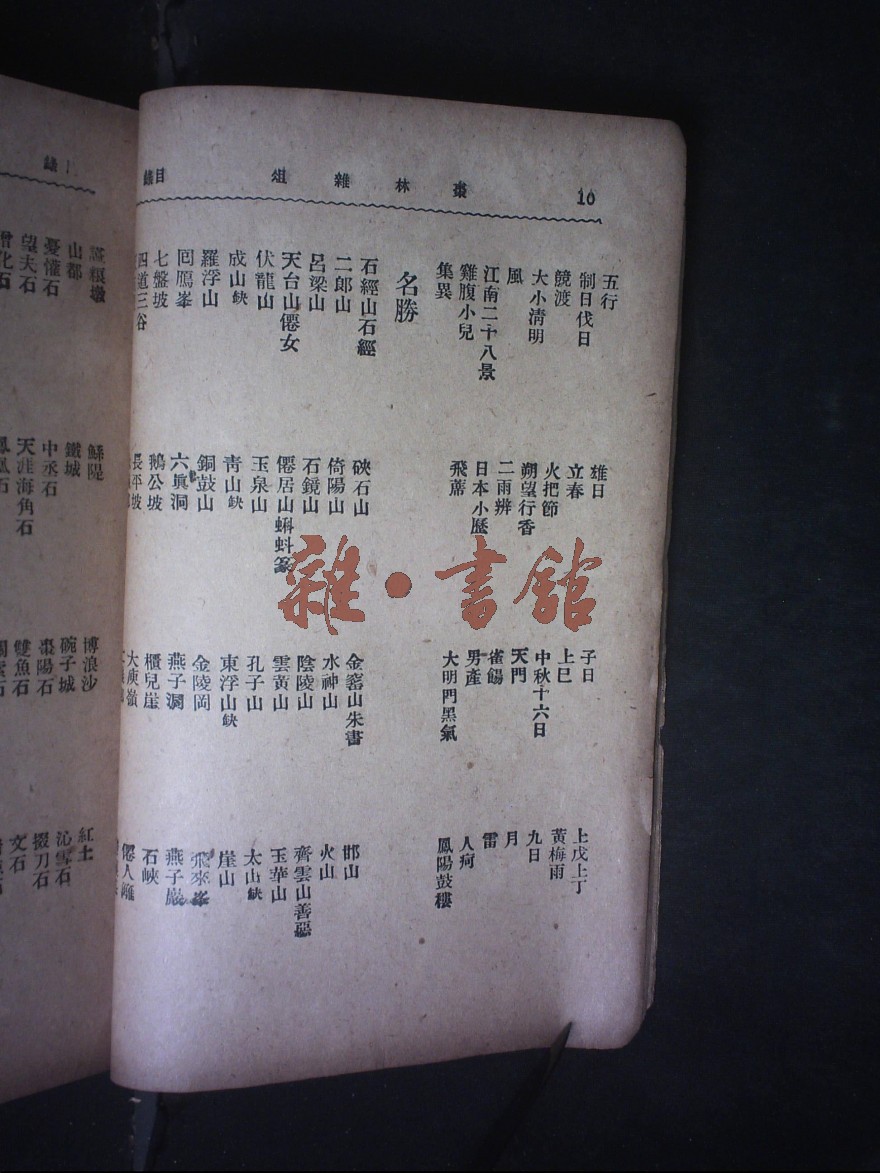 10
棗林雜俎
目錄
五行
雄日
子日
上戊上丁
制日伐日
立春
上巳
黃梅雨
競渡
火把節
中秋十六日
九日
大小清明
朔望行香
天門
月
風
二雨辨
雀餳
雷
江南二十八景
日本小曆
男產
人疴
雞腹小兒
飛蓆
大明門黑氣
鳳陽鼓樓
集異
名勝
石經山石經
硤石山
金窰山朱書
邯山
二郎山
倚陽山
水神山
火山
呂梁山
石鏡山
陰陵山
齊雲山善惡
天台山僊女
僊居山蝌蚪篆
雲黃山
玉華山
伏龍山
玉泉山
孔子山
太山缺
成山缺
青山缺
東浮山缺
崖山
羅浮山
銅鼓山
金陵岡
飛來峯
囘鴈峯
六真洞
燕子澗
燕子巖
七盤坡
鵝公坡
櫃兒崖
石峽
四道三谷
長平坡
大庾嶺
僊人
雜・書館
鯀隄
博浪沙
紅土
山都
鐵城
碗子城
沁雪石
憂懽石
中丞石
棗陽石
掇刀石
望夫石
天涯海角石
雙魚石
文石
化石